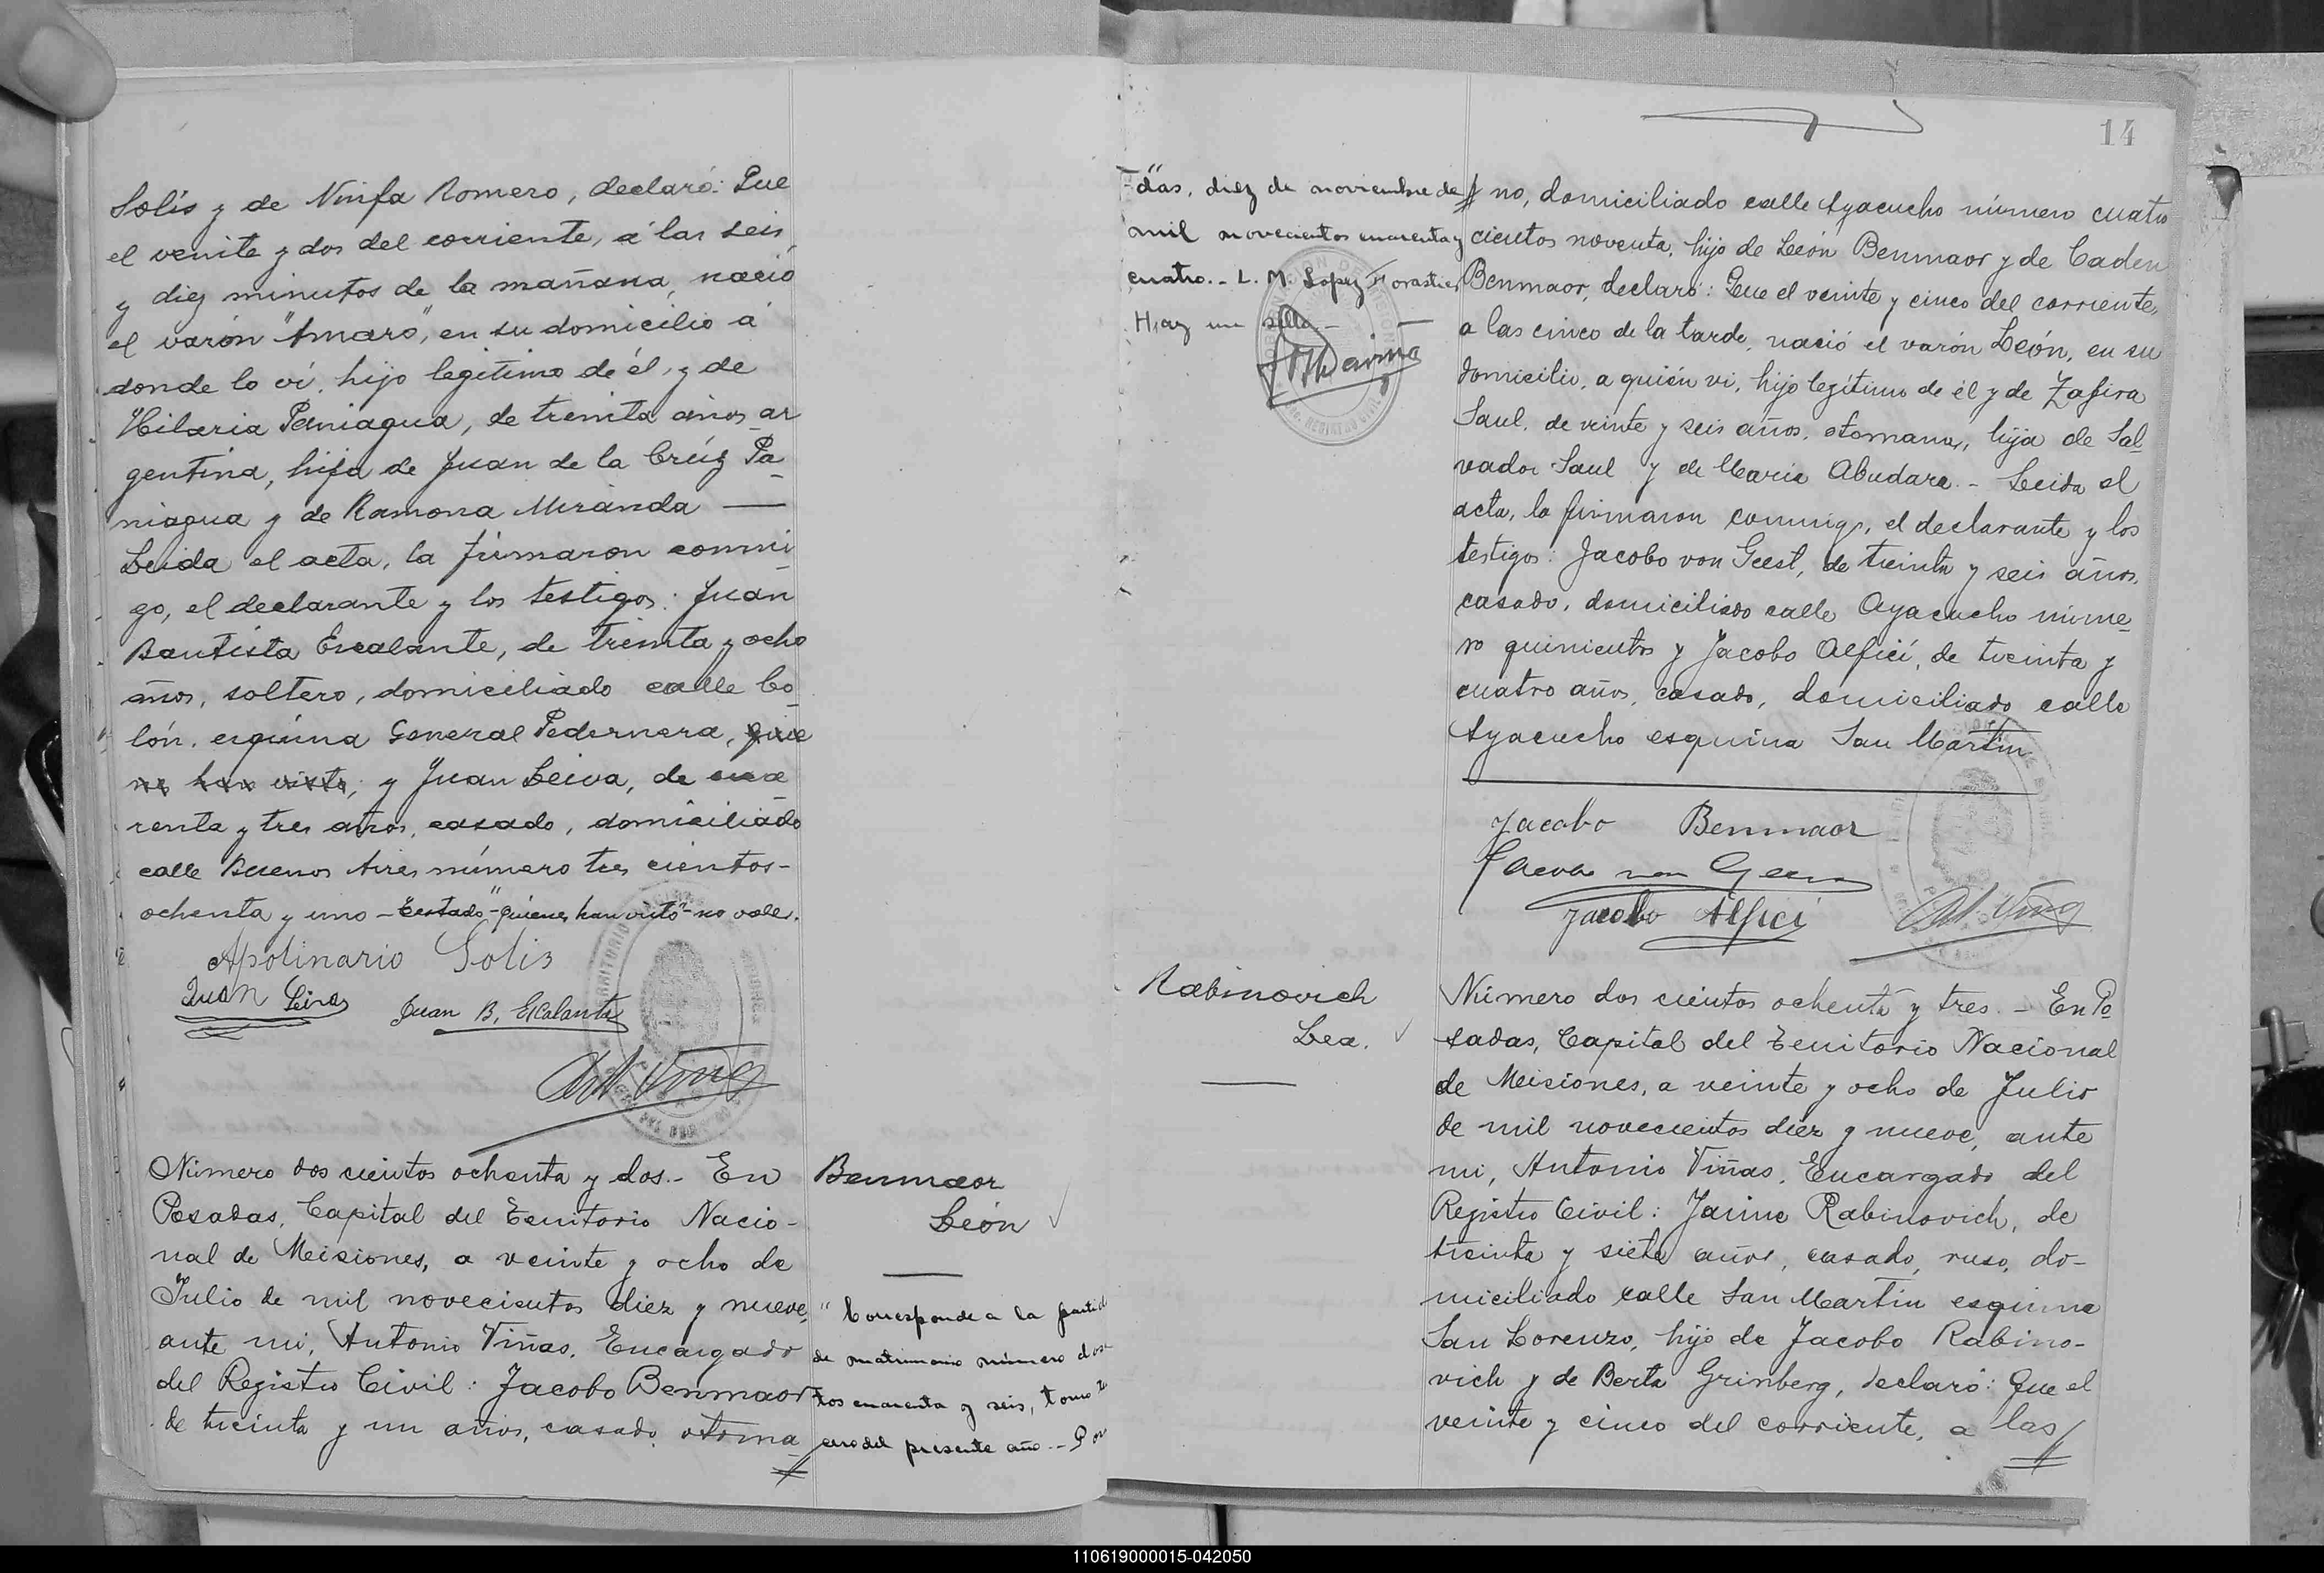 Solís y de Ninfa Romero, declaró: Que
el veinte y dos del corriente, a las seis
y diez minutos de la mañana, nació
el varón "Amaro", en su domicilio a
donde lo ví, hijo legítimo de él, y de
Hilaria Paniagua, de treinta años, ar
gentina, hija de Juan de la Crúz Pa-
niagua y de Ramona Miranda —
Leida el acta, la firmaron conmi-
go, el declarante y los testigos: Juan
Bautista Escalante, de treinta y ocho
años, soltero, domiciliado calle Co-
lón, esquina General Pedernera,
y Juan Leiva, de cua-
renta y tres años, casado, domiciliado
calle Buenos Aires número tres cientos-
ochenta y uno - Testado - "quienes han visto" - no vale.
Apolinario Solis
Juan Leiva
Juan B. Escalante
Número dos cientos ochenta y dos.- En
Posadas, Capital del Territorio Nacio-
nal de Misiones, a veinte y ocho de
Julio de mil novecientos diez y nueve,
ante mi, Antonio Viñas, Encargado
del Registro Civil: Jacobo Benmaor
de treinta y un años, casado, otoma-
Benmaor
León
"Corresponde a la partid
de matrimonio número dos
tos cuarenta y seis, tomo
cero del presente año.- Po
14
das, diez de noviembre de
mil novecientos cuarenta y
cuatro.- L. M. Lopez Forastier
Hay un sello -
no, domiciliado calle Ayacucho número cuatro
cientos noventa, hijo de León Benmaor y de Caden
Benmaor, declaró: Que el veinte y cinco del corriente,
a las cinco de la tarde, nació el varón León, en su
domicilio, a quién vi, hijo legítimo de él y de Zafira
Saul, de veinte y seis años, otomana, hija de Sal-
vador Saul y de Maria Abudara.- Leida el
acta, la firmaron conmigo, el declarante y los
testigos: Jacobo von Geest, de treinta y seis años,
casado, domiciliado calle Ayacucho núme-
ro quinientos y Jacobo Alfici, de treinta y
cuatro años, casado, domiciliado calle
Ayacucho esquina San Martin
Jacobo Benmaor
Jacobo Alfici
Rabinovich
Lea.
Número dos cientos ochenta y tres.- En Po
sadas, Capital del Territorio Nacional
de Misiones, a veinte y ocho de Julio
de mil novecientos diez y nueve, ante
mi, Antonio Viñas, Encargado del
Registro Civil: Jaime Rabinovich, de
treinta y siete años, casado, ruso, do-
miciliado calle San Martin esquina
San Lorenzo, hijo de Jacobo Rabino-
vich y de Berta Grinberg, declaró: Que el
veinte y cinco del corriente, a las
110619000015-042050